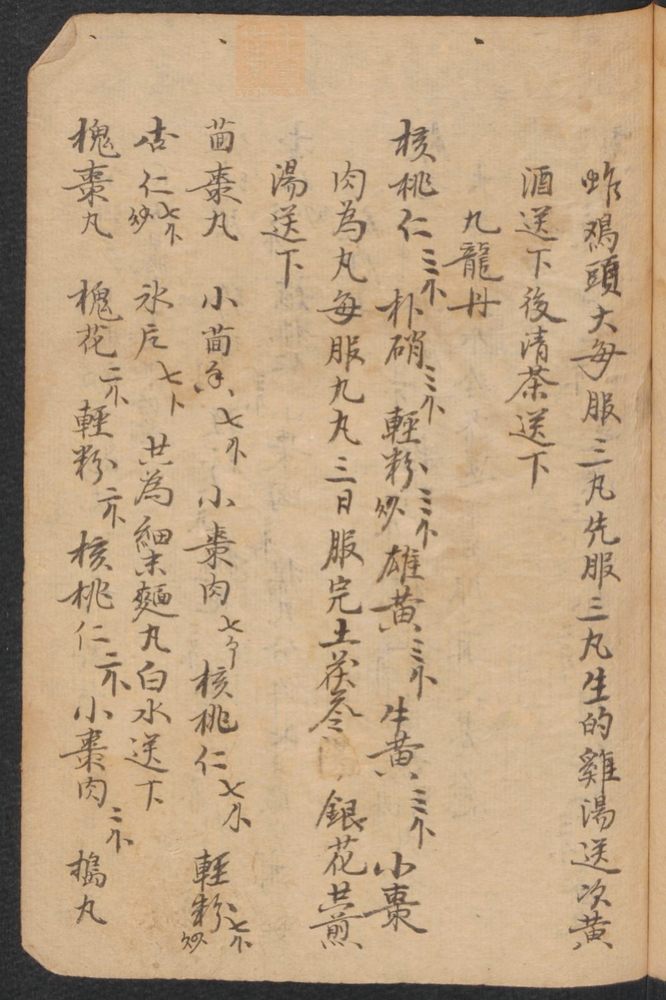 蚱鸡頭大每服三丸先服三丸生的雞湯送次黄
酒送下後清茶送下
九龍丹
核桃仁三个 朴硝三个 輕粉炒三个 雄黄三个 牛黄三个 小棗
肉為丸每服九丸三日服完土茯苓 銀花共煎
湯送下
茴棗丸 小茴香七个 小棗肉七个 核桃仁七个 輕粉炒七个
杏仁炒七个 氷片七卜 共為細末麵丸白水送下
槐棗丸 槐花二个 輕粉二个 核桃仁二个 小棗肉二个 搗丸